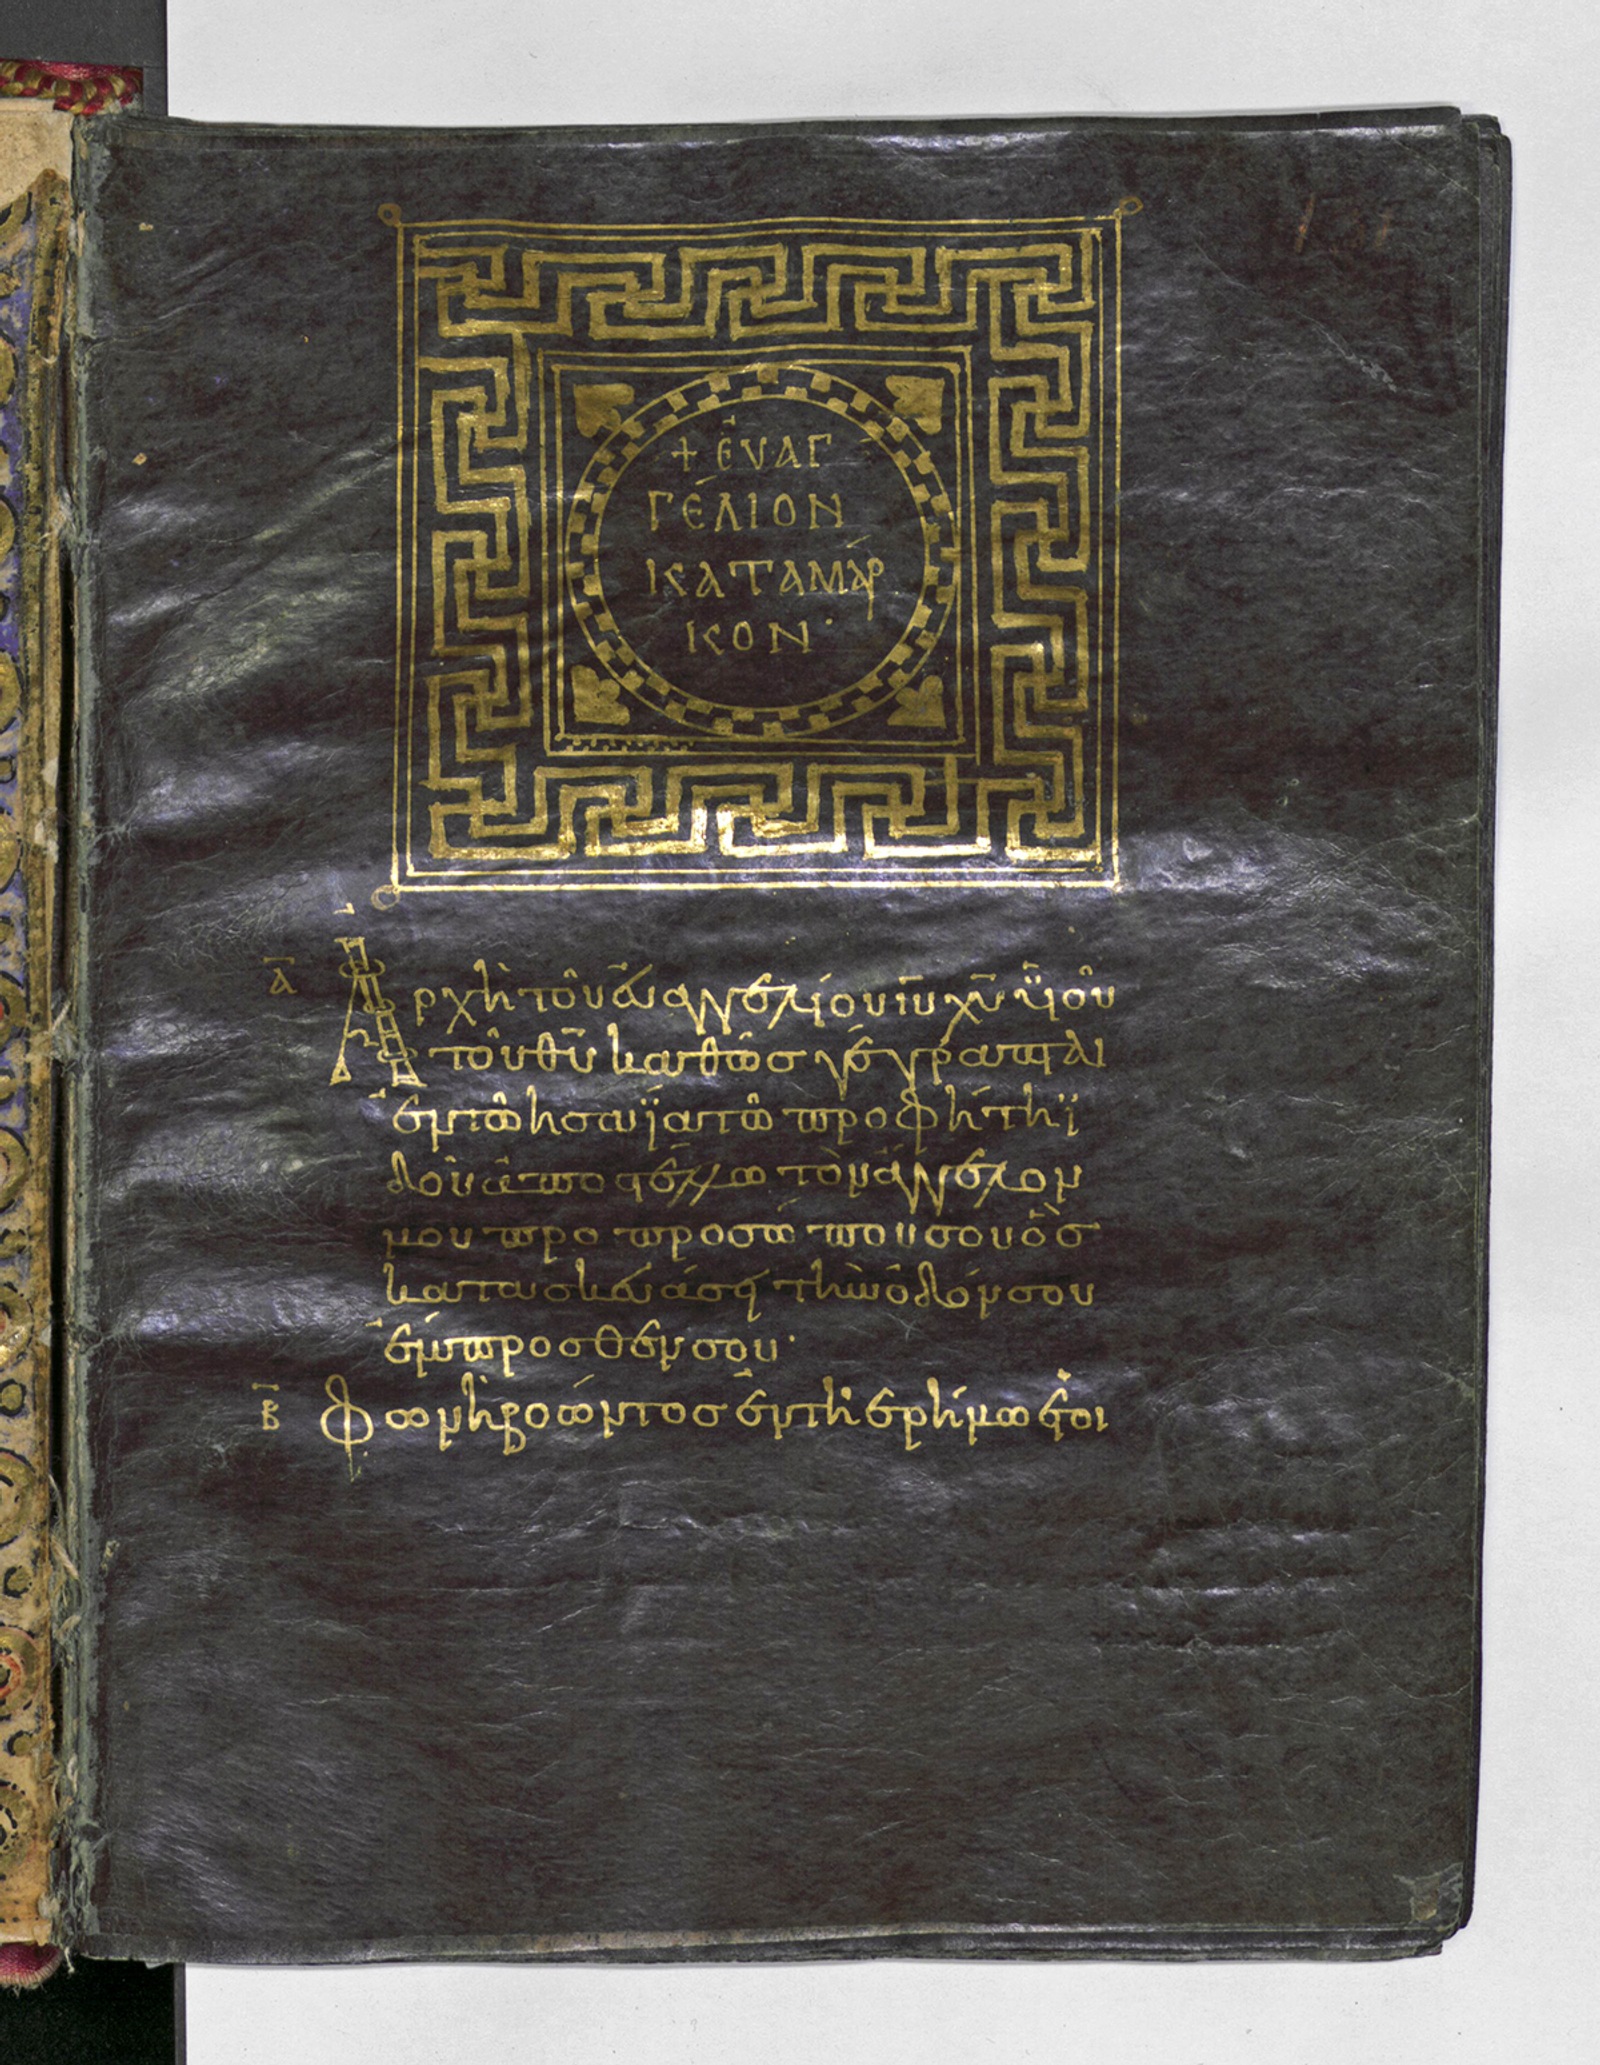 + ἐυαγ
γέλιον
κατα μάρ
κον·
α
Ἀρχὴ τοῦ ἐυαγγελίου ιυ χυ ϋιοῦ
τοῦ θυ καθὼσ γέγραπται
ἐν τῶ ησαϊα τῶ προφήτηϊ
ϊδοῦ ἀποστέλλω τὸν ἄγγελον
μου προ προσώπου σου ὃσ
κατασκευάσει τὴν ὁδόν σου
ἔμπροσθέν σου·
β
Φωνὴ βοῶντοσ ἐν τῆ ερήμω ἑτοι